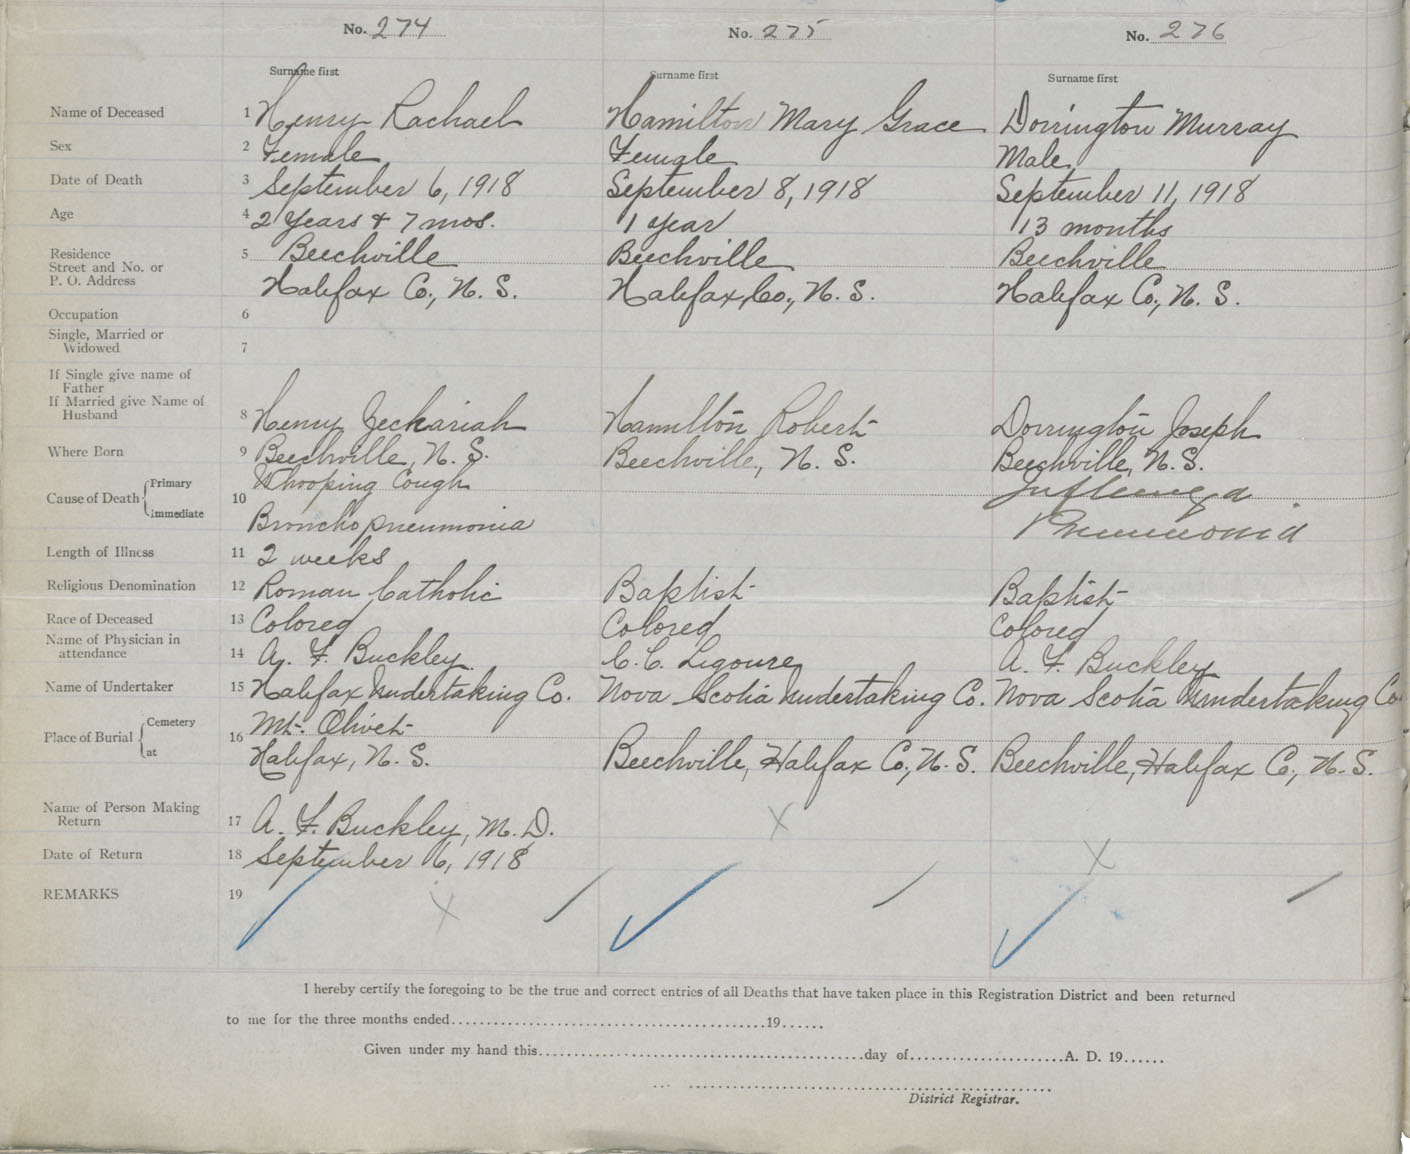 No. 274 No. 275 No. 276
Surname first Surname first Surname first
Name of Deceased 1 Henry Rachael Hamilton Mary Grace Dorrington Murray
Sex 2 Female Female Male
Date of Death 3 September 6, 1918 September 8, 1918 September 11, 1918
Age 4 2 years & 7 mos. 1 year 13 months
Residence 5 Beechville Beechville Beechville
Street and No. or
P. O. Address Halifax Co., N. S. Halifax, Co., N. S. Halifax Co., N. S.
Occupation 6
Single, Married or
Widowed 7
If Single give name of
Father
If Married give Name of
Husband 8 Henry Zechariah Hamilton Robert Dorrington Joseph
Where Born 9 Beechville, N. S. Beechville, N. S. Beechville, N. S.
Cause of Death Primary Whooping Cough Influenza
10
Immediate Broncho pneumonia Pneumonia
Length of Illness 11 2 weeks
Religious Denomination 12 Roman Catholic Baptist Baptist
Race of Deceased 13 Colored Colored Colored
Name of Physician in
attendance 14 A. F. Buckley C. C. Ligoure A. F. Buckley
Name of Undertaker 15 Halifax Undertaking Co. Nova Scotia Undertaking Co. Nova Scotia Undertaking Co.
Place of Burial Cemetery Mt. Olivet
16
at Halifax, N. S. Beechville, Halifax Co., N. S. Beechville, Halifax Co., N. S.
Name of Person Making
Return 17 A. F. Buckley, M. D.
Date of Return 18 September 6, 1918
REMARKS 19
I hereby certify the foregoing to be the true and correct entries of all Deaths that have taken place in this Registration District and been returned
to me for the three months ended..........19......
Given under my hand this..........day of..........A. D. 19......
District Registrar.